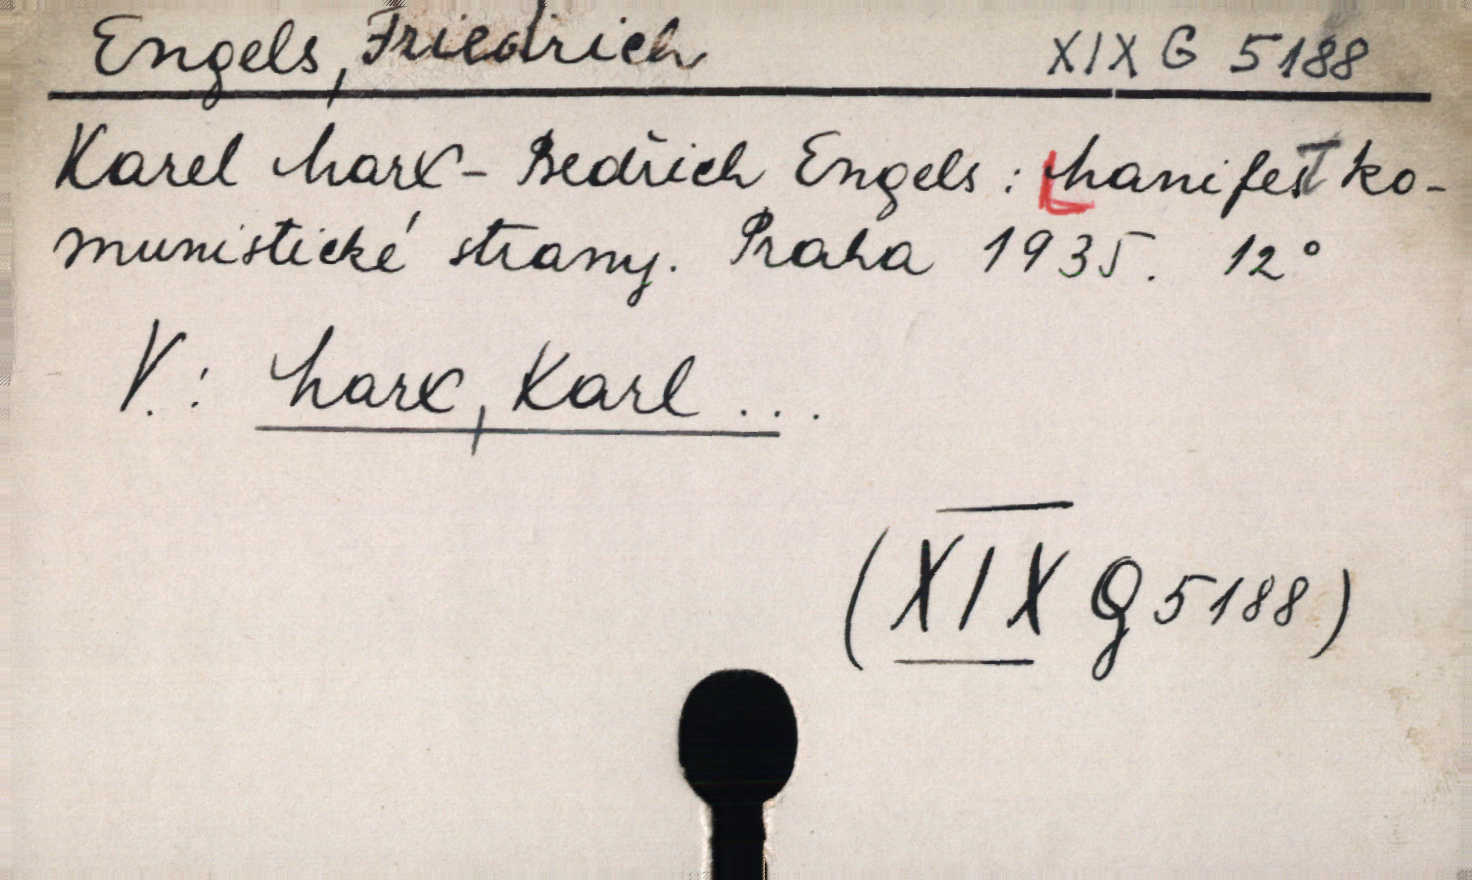 Engels, Friedrich XIX G 5188
Karel Marx - Bedřich Engels: Manifest ko-
munistické strany. Praha 1935. 12°
V.: Marx, Karl ...
(XIX G 5188)